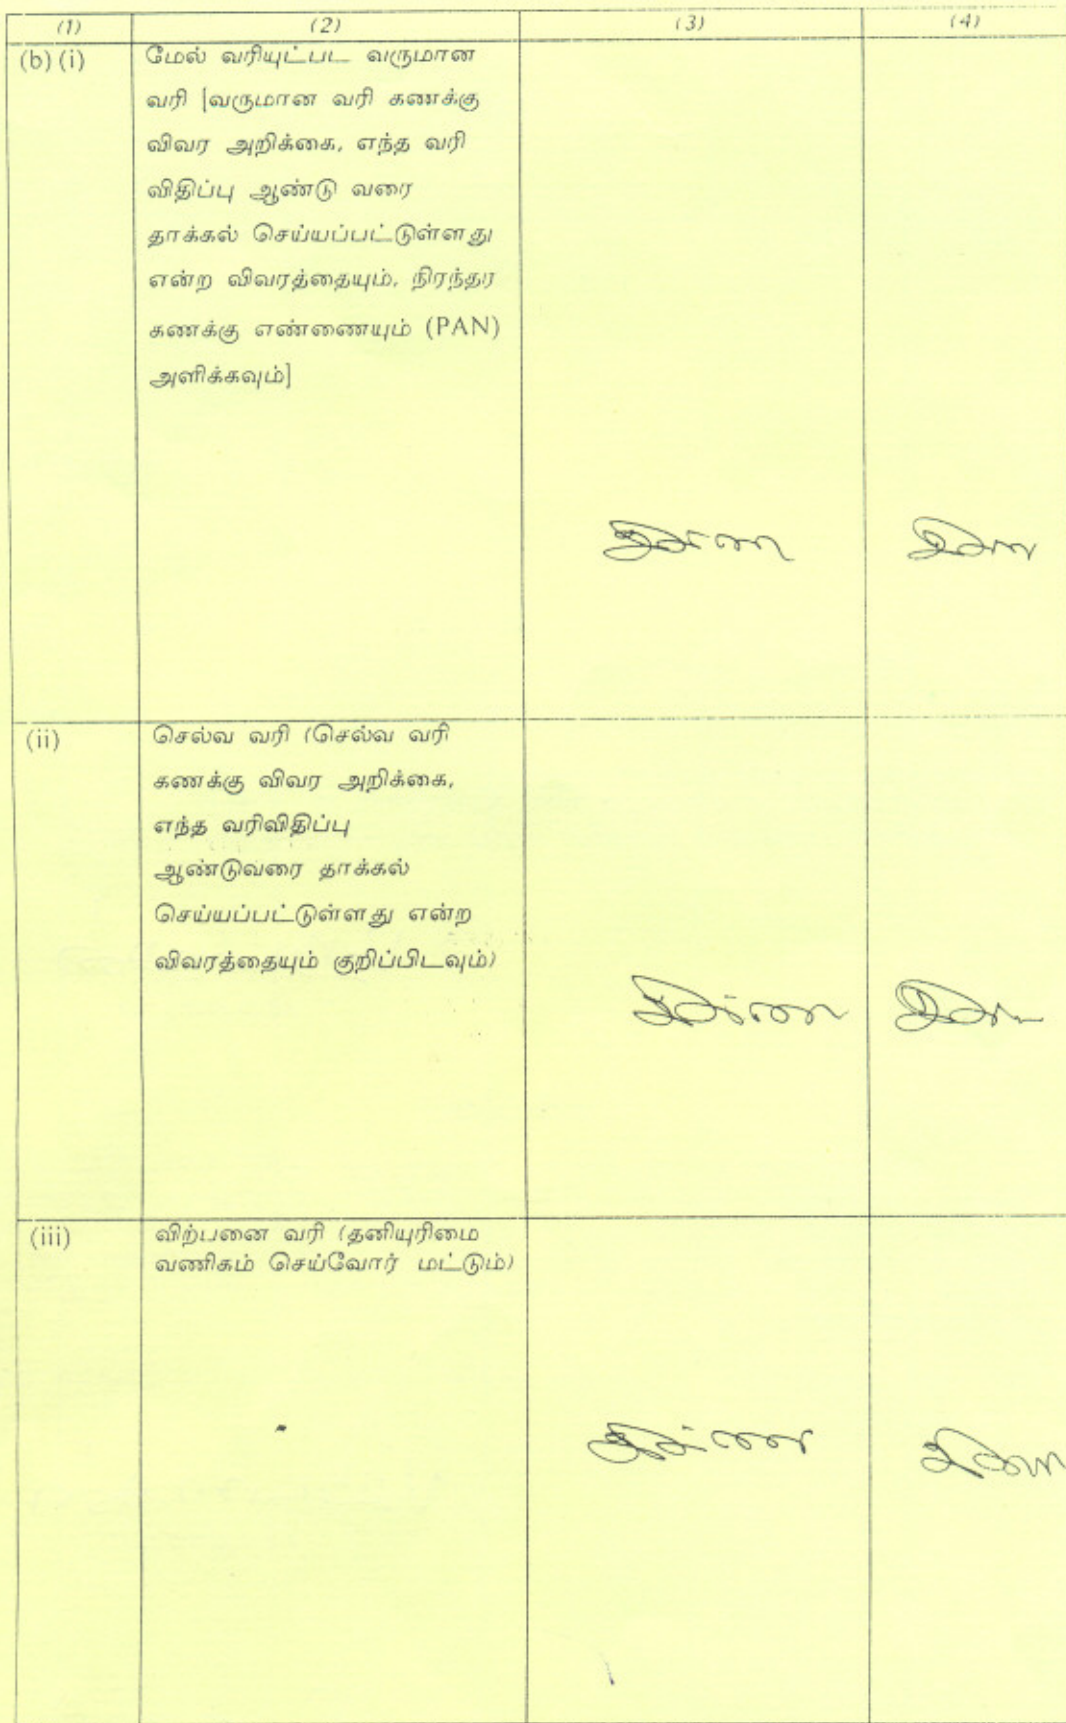 (1) (2) (3) (4)
(b) (i) மேல் வரியுட்பட வருமான
வரி [வருமான வரி கணக்கு
விவர அறிக்கை, எந்த வரி
விதிப்பு ஆண்டு வரை
தாக்கல் செய்யப்பட்டுள்ளது
என்ற விவரத்தையும், நிரந்தர
கணக்கு எண்ணையும் (PAN)
அளிக்கவும்]
(ii) செல்வ வரி (செல்வ வரி
கணக்கு விவர அறிக்கை,
எந்த வரிவிதிப்பு
ஆண்டுவரை தாக்கல்
செய்யப்பட்டுள்ளது என்ற
விவரத்தையும் குறிப்பிடவும்)
(iii) விற்பனை வரி (தனியுரிமை
வணிகம் செய்வோர் மட்டும்)